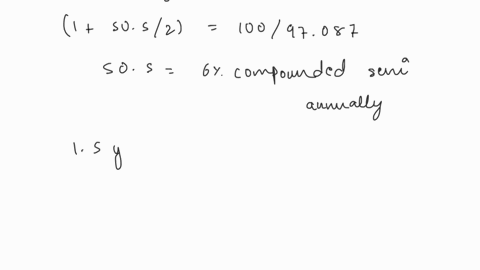 (1 + s0.s/2) = 100/97.087
s0.s = 6% compounded semi annually
1.5 y